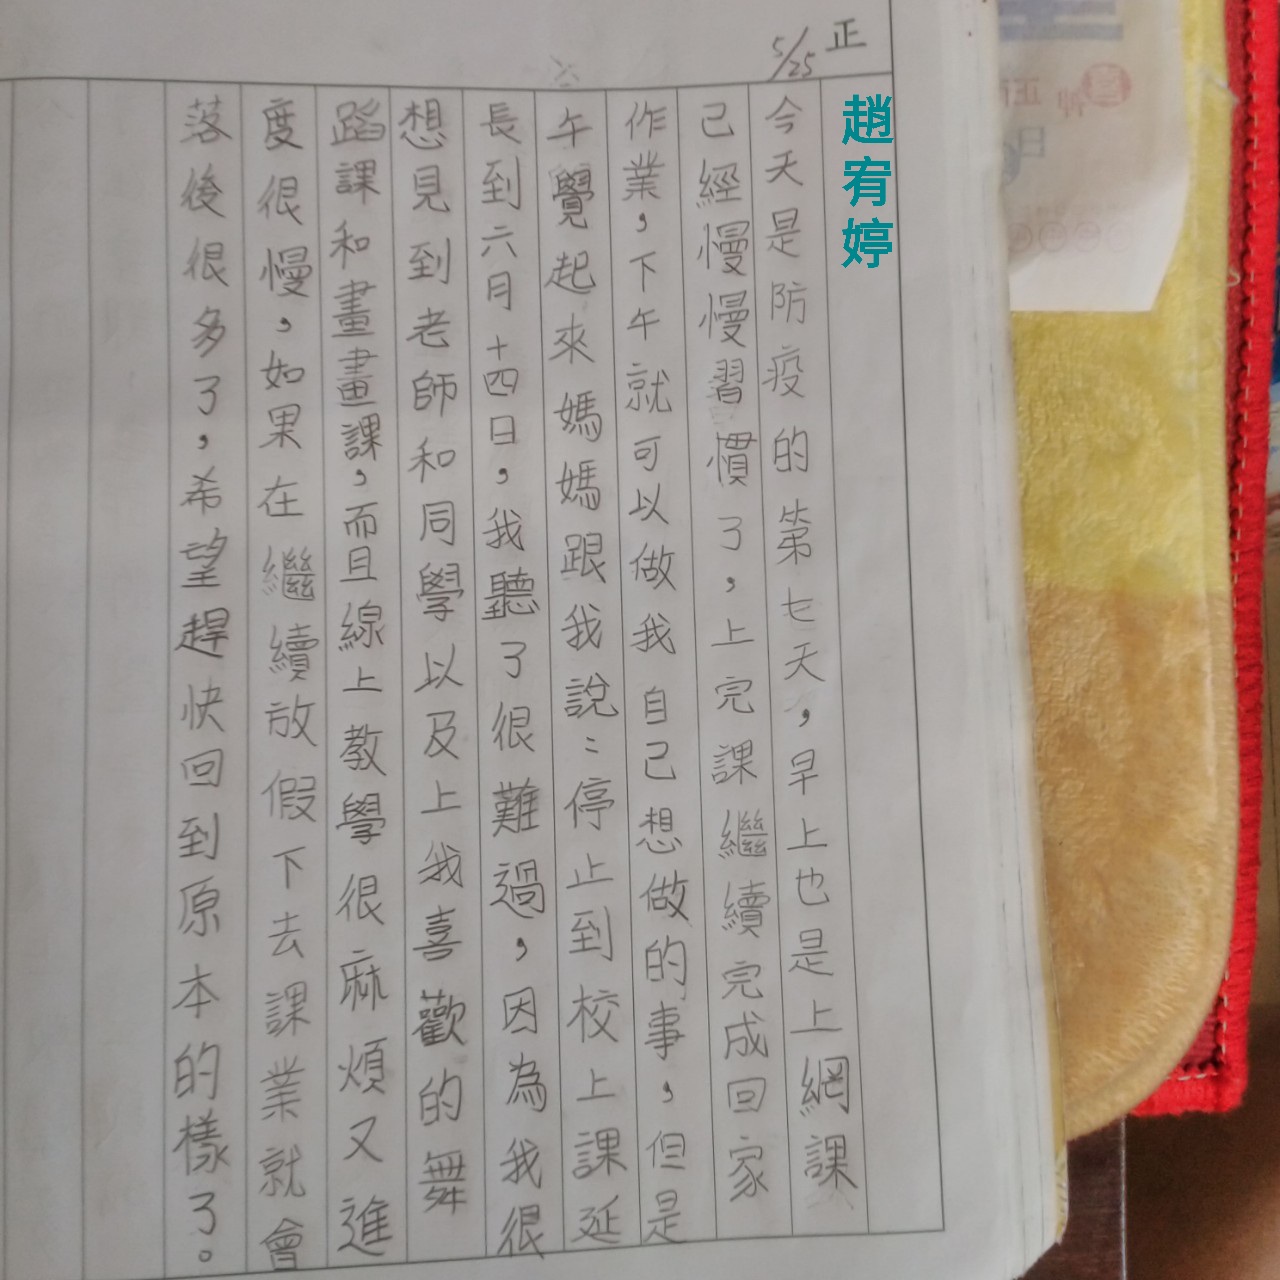 正
5/25
趙宥婷
今天是防疫的第七天，早上也是上網課
己經慢慢習慣了，上完課繼續完成回家
作業，下午就可以做我自己想做的事，但是
午覺起來媽媽跟我說：停止到校上課延
長到六月十四日，我聽了很難過，因為我很
想見到老師和同學以及上我喜歡的舞
蹈課和畫畫課，而且線上教學很麻煩又進
度很慢，如果在繼續放假下去課業就會
落後很多了，希望趕快回到原本的樣了。